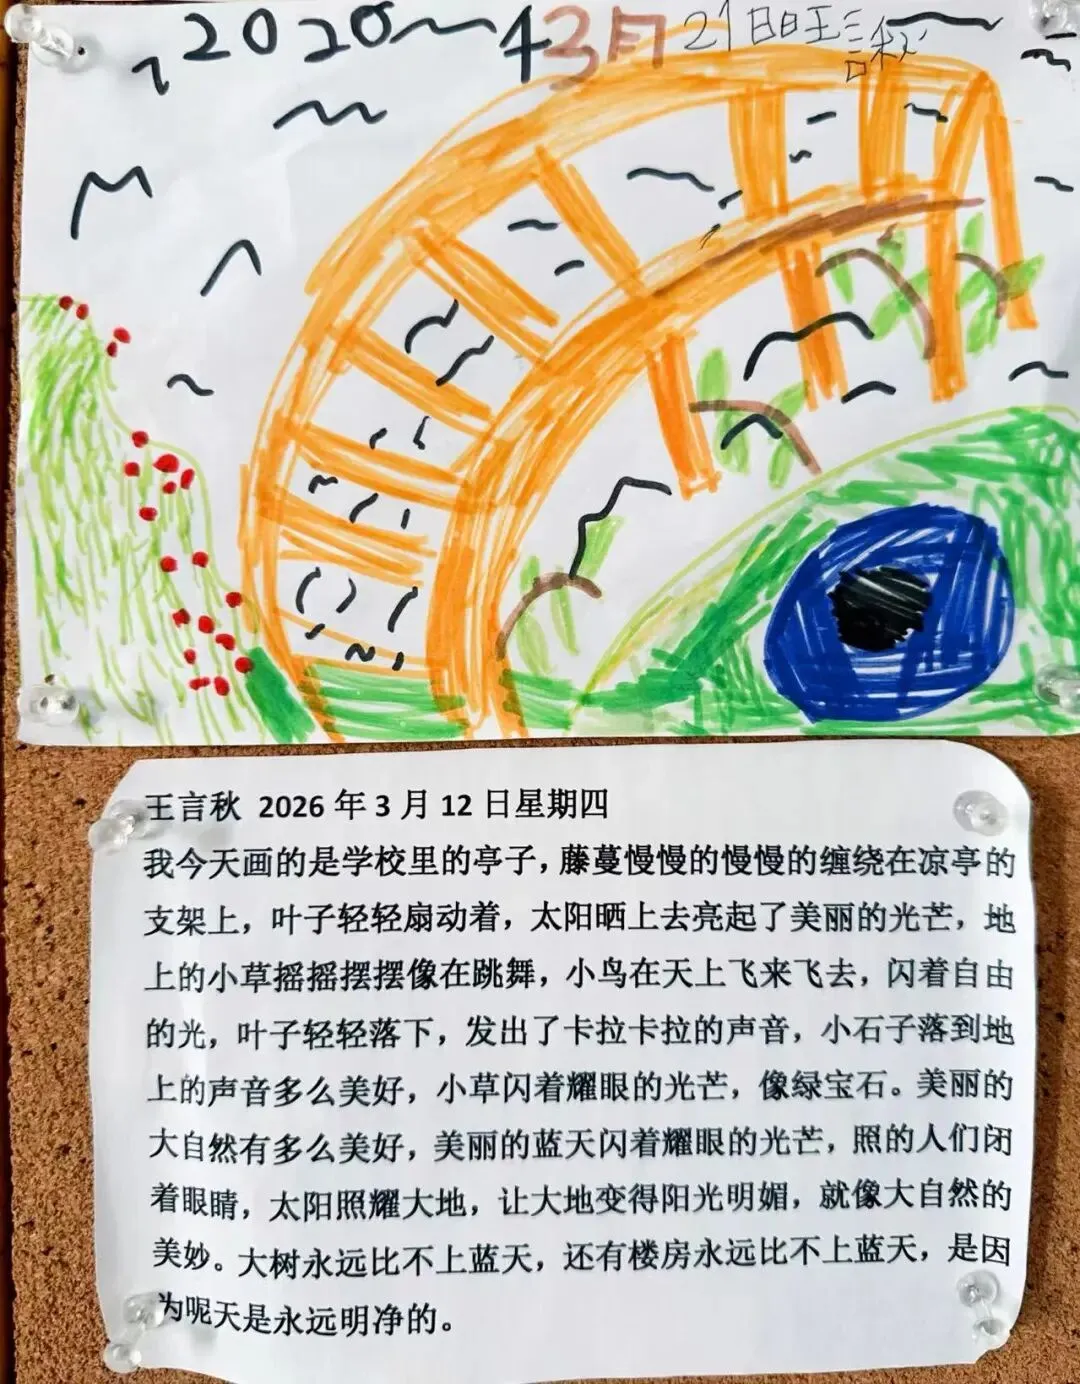 2020年3月21日王言秋
王言秋 2026年3月12日星期四
我今天画的是学校里的亭子，藤蔓慢慢的慢慢的缠绕在凉亭的
支架上，叶子轻轻扇动着，太阳晒上去亮起了美丽的光芒，地
上的小草摇摇摆摆像在跳舞，小鸟在天上飞来飞去，闪着自由
的光，叶子轻轻落下，发出了卡拉卡拉的声音，小石子落到地
上的声音多么美好，小草闪着耀眼的光芒，像绿宝石。美丽的
大自然有多么美好，美丽的蓝天闪着耀眼的光芒，照的人们闭
着眼睛，太阳照耀大地，让大地变得阳光明媚，就像大自然的
美妙。大树永远比不上蓝天，还有楼房永远比不上蓝天，是因
为呢天是永远明净的。